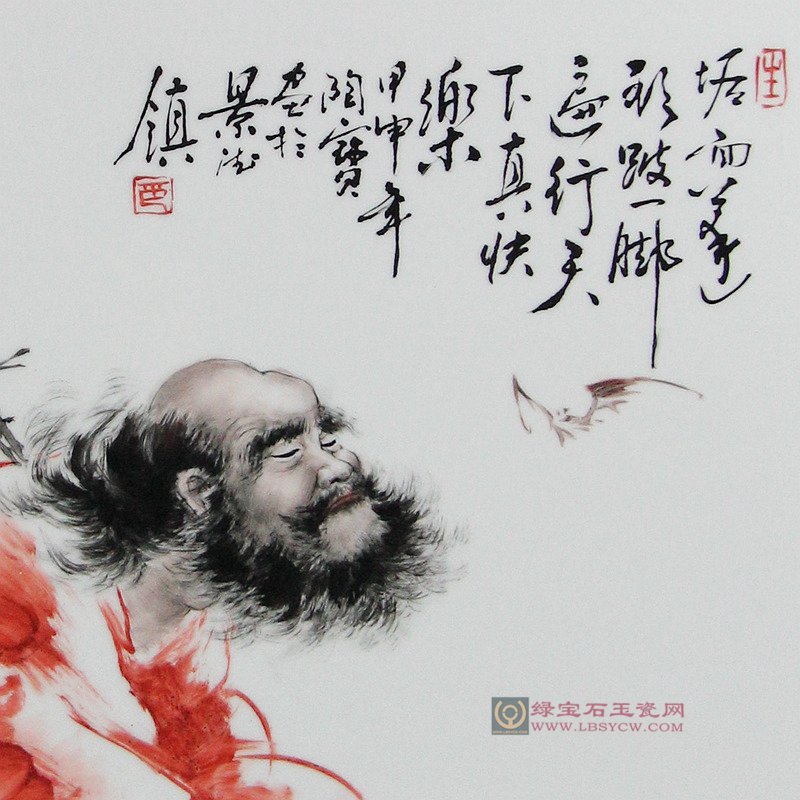 垢面蓬
頭跛一脚
遍行天
下真快
樂
甲申年
陶寶
畫於
景德
鎮
绿宝石玉瓷网
WWW.LBSYCW.COM